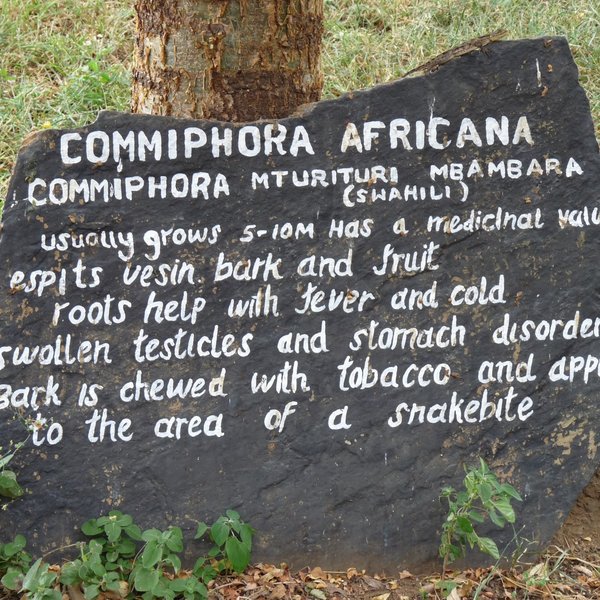 COMMIPHORA AFRICANA
COMMIPHORA MTURITURI MBAMBARA
(SWAHILI)
usually grows 5-10M Has a medicinal valu
espits vesin bark and fruit
roots help with fever and cold
swollen testicles and stomach disorder
Bark is chewed with tobacco and app
to the area of a snakebite